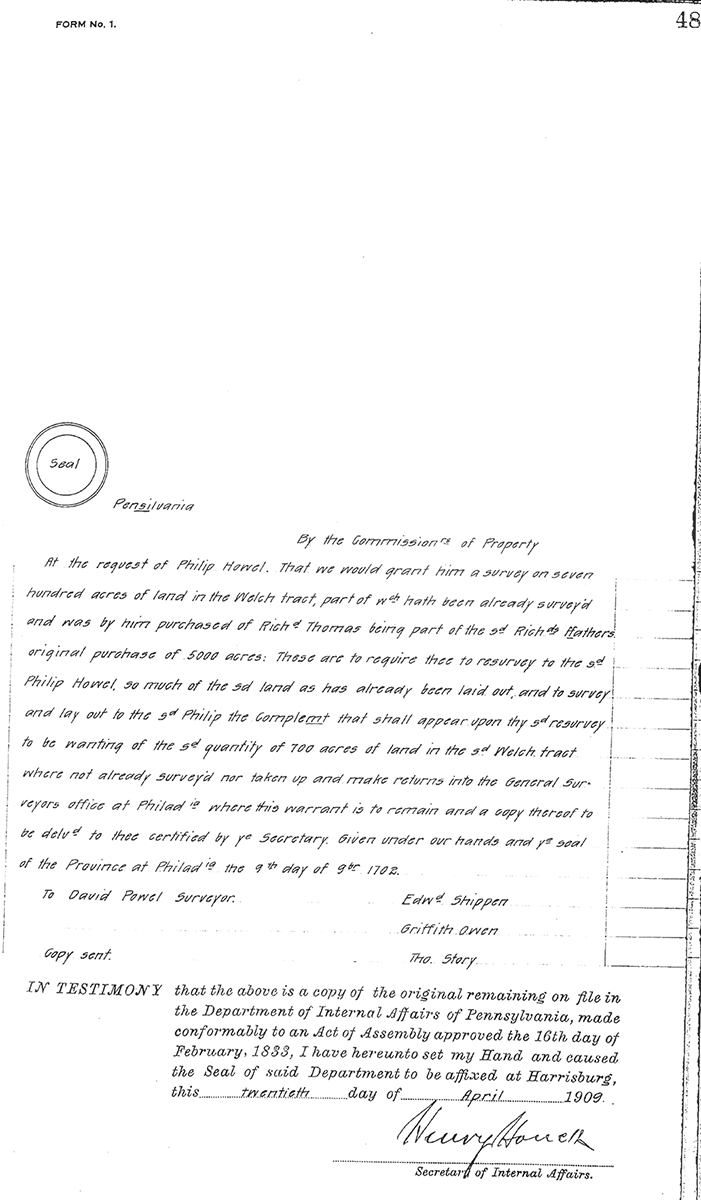 FORM No. 1.
48
Seal
Pensilvania
By the Commission^rs of Property
At the request of Philip Howel. That we would grant him a survey on seven
hundred acres of land in the Welch tract, part of w^ch hath been already survey'd
and was by him purchased of Rich^d Thomas being part of the s^d Rich^ds ffathers
original purchase of 5000 acres: These are to require thee to resurvey to the s^d
Philip Howel, so much of the sd land as has already been laid out, and to survey
and lay out to the s^d Philip the Complemt that shall appear upon thy s^d resurvey
to be wanting of the s^d quantity of 700 acres of land in the s^d Welch tract
where not already survey'd nor taken up and make returns into the General Sur-
veyors office at Philad^ia where this warrant is to remain and a copy thereof to
be deluv^d to thee certified by y^e Secretary. Given under our hands and y^e seal
of the Province at Philad^ia the 9^th day of 9^br 1702.
To David Powel Surveyor.
Edw^d Shippen
Griffith Owen
Copy sent.
Tho. Story
IN TESTIMONY that the above is a copy of the original remaining on file in
the Department of Internal Affairs of Pennsylvania, made
conformably to an Act of Assembly approved the 16th day of
February, 1833, I have hereunto set my Hand and caused
the Seal of said Department to be affixed at Harrisburg,
this twentieth day of April 1909.
Henry Houck
Secretary of Internal Affairs.